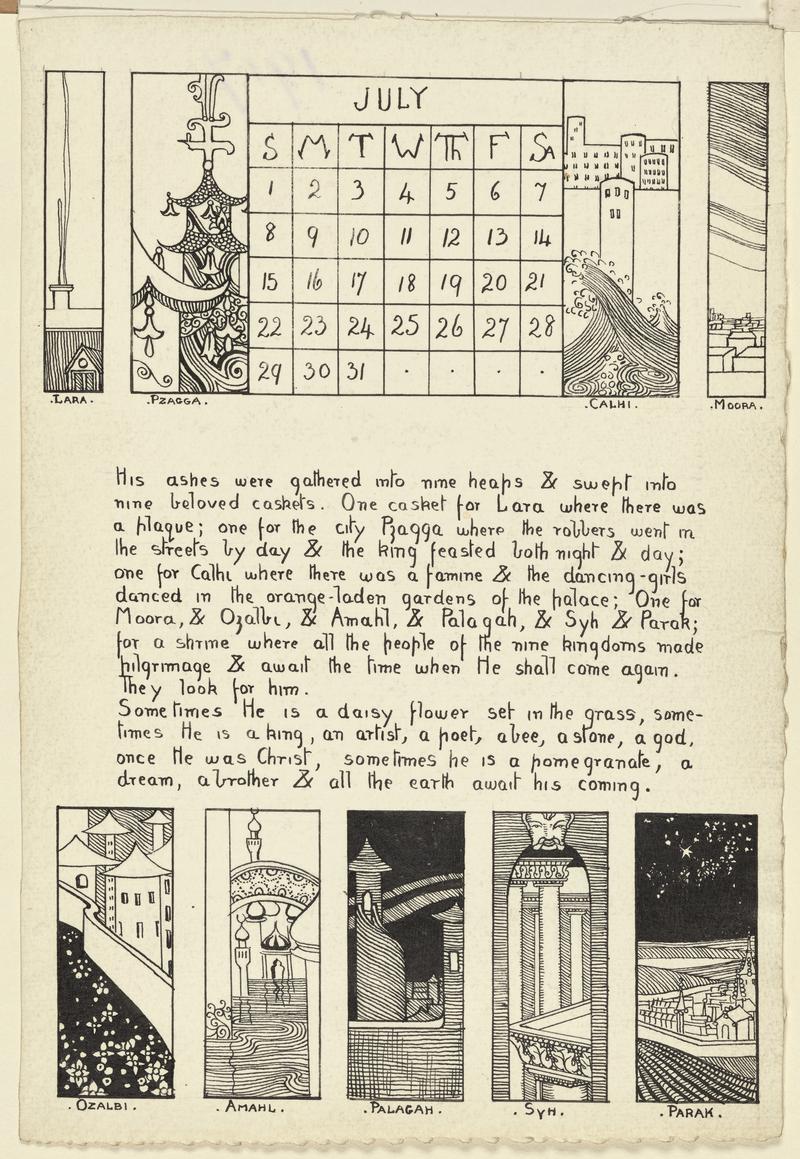 JULY
S M T W Th F SA
1 2 3 4 5 6 7
8 9 10 11 12 13 14
15 16 17 18 19 20 21
22 23 24 25 26 27 28
29 30 31 . . . .
.LARA. .PZAGGA. .CALHI. .MOORA.
His ashes were gathered into nine heaps & swept into
nine beloved caskets. One casket for Lara where there was
a plague; one for the city Pzagga where the robbers went in
the streets by day & the king feasted both night & day;
one for Calhi where there was a famine & the dancing-girls
danced in the orange-laden gardens of the palace; One for
Moora, & Ozalbi, & Amahl, & Palagah, & Syh & Parak;
for a shrine where all the people of the nine kingdoms made
pilgrimage & await the time when He shall come again.
They look for him.
Sometimes He is a daisy flower set in the grass, some-
times He is a king, an artist, a poet, a bee, a stone, a god,
once He was Christ, sometimes he is a pomegranate, a
dream, a brother & all the earth await his coming.
.OZALBI. .AMAHL. .PALAGAH. .SYH. .PARAK.